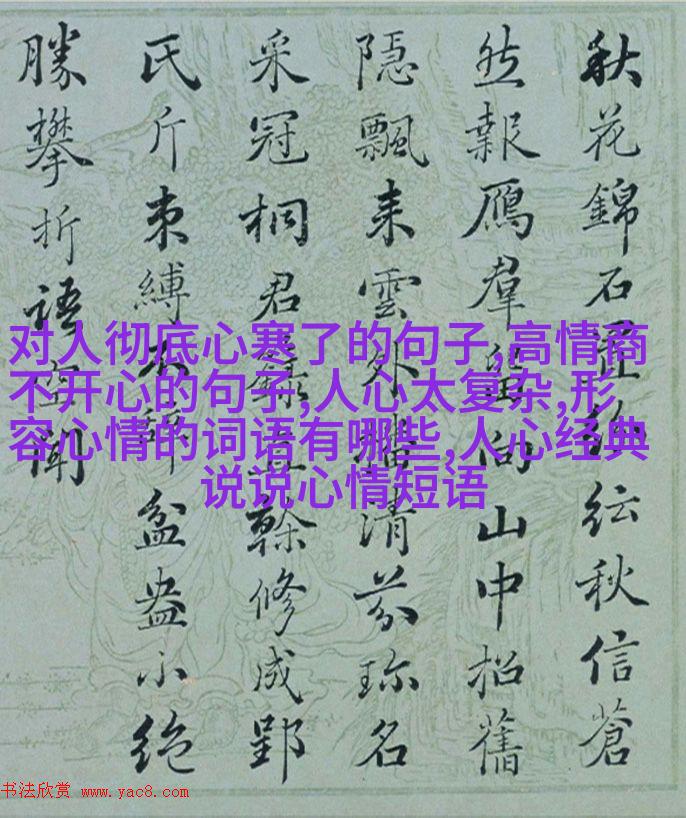 秋花錦石紜秋信蒼
然報鴈羣向山中招舊
隱飄来雲外清芬珎名
采冠桐君幹修成郢
氏斤束縛不辭盆盎小絶
勝攀折語空聞
对人彻底心寒了的句子,高情商
不开心的句子,人心太复杂,形
容心情的词语有哪些,人心经典
说说心情短语
书法欣赏 www.yac8.com